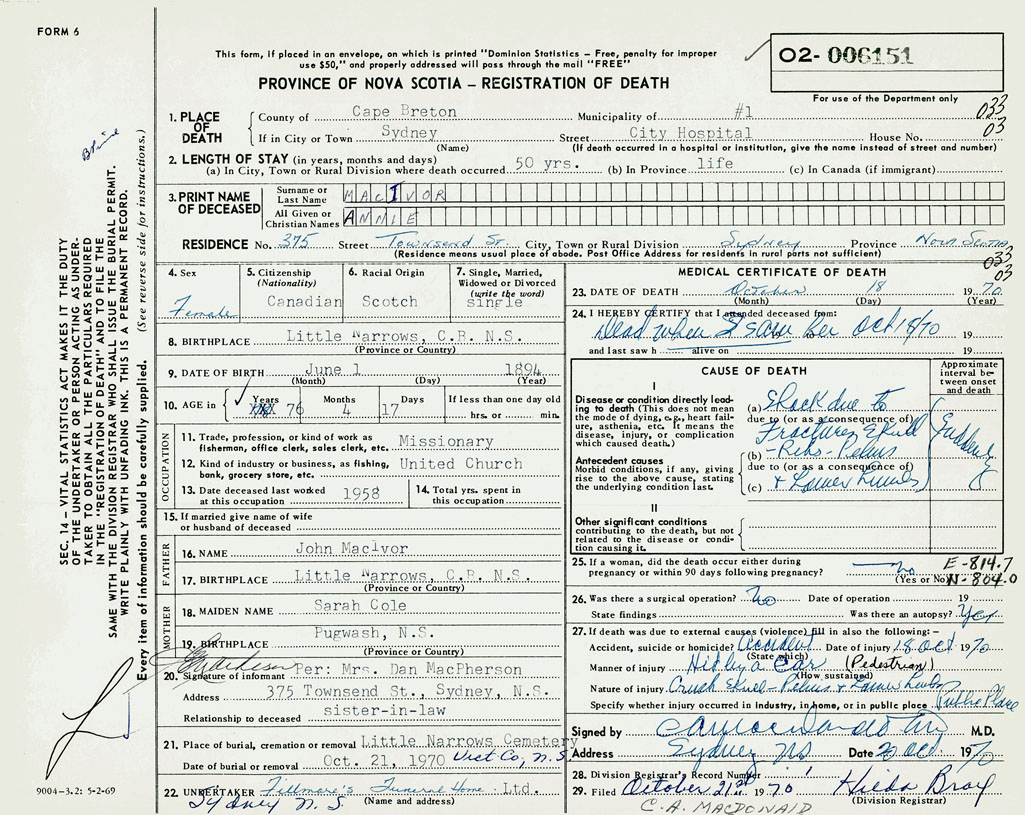 FORM 6
This form, if placed in an envelope, on which is printed "Dominion Statistics - Free, penalty for improper
use $50," and properly addressed will pass through the mail "FREE"
PROVINCE OF NOVA SCOTIA - REGISTRATION OF DEATH
O2- 006151
For use of the Department only
033
03
SEC. 14 - VITAL STATISTICS ACT MAKES IT THE DUTY
OF THE UNDERTAKER OR PERSON ACTING AS UNDER-
TAKER TO OBTAIN ALL THE PARTICULARS REQUIRED
IN THE "REGISTRATION OF DEATH" AND TO FILE THE
SAME WITH THE DIVISION REGISTRAR WHO SHALL ISSUE THE BURIAL PERMIT.
WRITE PLAINLY WITH UNFADING INK. THIS IS A PERMANENT RECORD.
Every item of information should be carefully supplied. (See reverse side for instructions.)
1. PLACE OF DEATH
County of Cape Breton Municipality of #1
If in City or Town Sydney Street City Hospital House No.
(Name) (If death occurred in a hospital or institution, give the name instead of street and number)
2. LENGTH OF STAY (in years, months and days)
(a) In City, Town or Rural Division where death occurred 50 yrs. (b) In Province life (c) In Canada (if immigrant)
3. PRINT NAME OF DECEASED
Surname or Last Name MACIVOR
All Given or Christian Names ANNIE
RESIDENCE No. 375 Street Townsend St. City, Town or Rural Division Sydney Province Nova Scotia
(Residence means usual place of abode. Post Office Address for residents in rural parts not sufficient)
033
03
4. Sex Female
5. Citizenship (Nationality) Canadian
6. Racial Origin Scotch
7. Single, Married, Widowed or Divorced (write the word) single
8. BIRTHPLACE Little Narrows, C.B. N.S.
(Province or Country)
9. DATE OF BIRTH June 1 1894
(Month) (Day) (Year)
10. AGE in Years 76 Months 4 Days 17 If less than one day old hrs. or min.
OCCUPATION
11. Trade, profession, or kind of work as fisherman, office clerk, sales clerk, etc. Missionary
12. Kind of industry or business, as fishing, bank, grocery store, etc. United Church
13. Date deceased last worked at this occupation 1958
14. Total yrs. spent in this occupation
15. If married give name of wife or husband of deceased
FATHER
16. NAME John MacIvor
17. BIRTHPLACE Little Narrows, C.B. N.S.
(Province or Country)
MOTHER
18. MAIDEN NAME Sarah Cole
19. BIRTHPLACE Pugwash, N.S.
(Province or Country)
20. Signature of informant Per: Mrs. Dan MacPherson
Address 375 Townsend St., Sydney, N.S.
Relationship to deceased sister-in-law
21. Place of burial, cremation or removal Little Narrows Cemetery
Date of burial or removal Oct. 21, 1970 Vict Co, N.S.
22. UNDERTAKER Fillmore's Funeral Home Ltd.
Sydney N.S (Name and address)
9004-3.2: 5-2-69
MEDICAL CERTIFICATE OF DEATH
23. DATE OF DEATH October 18 1970
(Month) (Day) (Year)
24. I HEREBY CERTIFY that I attended deceased from:
Dead when I saw her Oct 18/70 19
and last saw h alive on 19
CAUSE OF DEATH
Approximate interval between onset and death
I
Disease or condition directly leading to death (This does not mean the mode of dying, e.g., heart failure, asthenia, etc. It means the disease, injury, or complication which caused death.)
(a) Shock due to
due to (or as a consequence of)
Fractures Skull
Antecedent causes
Morbid conditions, if any, giving rise to the above cause, stating the underlying condition last.
(b) - Ribs - Pelvis
due to (or as a consequence of)
(c) + Lower Limbs
Suddenly
II
Other significant conditions contributing to the death, but not related to the disease or condition causing it.
25. If a woman, did the death occur either during pregnancy or within 90 days following pregnancy? No
(Yes or No)
E-814.7
N-804.0
26. Was there a surgical operation? No Date of operation 19
State findings Was there an autopsy? Yes
27. If death was due to external causes (violence) fill in also the following:-
Accident, suicide or homicide? Accident Date of injury 18 Oct 1970
(State which)
Manner of injury Hit by a Car (Pedestrian)
(How sustained)
Nature of injury Crush Skull - Pelvis + Lower Limbs
Specify whether injury occurred in industry, in home, or in public place Public Place
Signed by M.D.
Address Sydney NS Date 20 Oct. 1970
28. Division Registrar's Record Number
29. Filed October 21st 1970 Hilda Bray
(Division Registrar)
C.A. MACDONALD